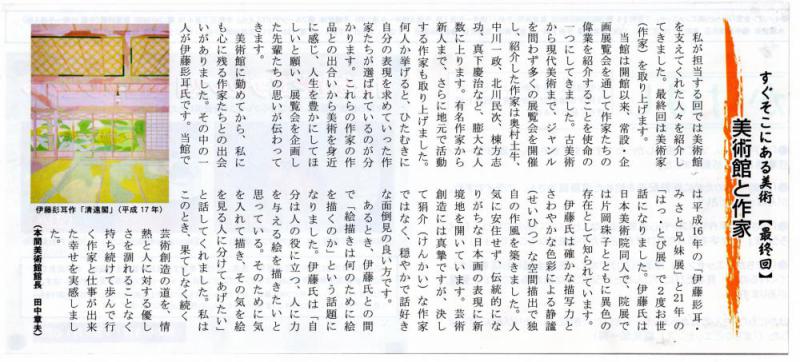 すぐそこにある美術　【最終回】
美術館と作家
私が担当する回では美術館
を支えてくれた人々を紹介し
てきました。最終回は美術家
（作家）を取り上げます。
当館は開館以来、常設・企
画展覧会を通して作家たちの
偉業を紹介することを使命の
一つにしてきました。古美術
から現代美術まで、ジャンル
を問わず多くの展覧会を開催
し、紹介した作家は奥村土牛、
中川一政、北川民次、棟方志
功、真下慶治など、膨大な人
数に上ります。有名作家から
新人まで、さらに地元で活動
する作家も取り上げました。
何人か挙げると、ひたむきに
自分の表現を求めていった作
家たちが選ばれているのが分
かります。これらの作家の作
品との出合いから美術を身近
に感じ、人生を豊かにしてほ
しいと願い、展覧会を企画し
た先輩たちの思いが伝わって
きます。
美術館に勤めてから、私に
も心に残る作家たちとの出会
いがありました。その中の一
人が伊藤髟耳氏です。当館で
は平成16年の「伊藤髟耳・
みさと兄妹展」と21年の
「はっ・とび展」で２度お世
話になりました。伊藤氏は
日本美術院同人で、院展で
は片岡珠子とともに異色の
存在として知られています。
伊藤氏は確かな描写力と
さわやかな色彩による静謐
（せいひつ）な空間描出で独
自の作風を築きました。人
気に安住せず、伝統的にな
りがちな日本画の表現に新
境地を開いています。芸術
創造には真摯ですが、決し
て狷介（けんかい）な作家
ではなく、穏やかで話好き
な面倒見の良い方です。
あるとき、伊藤氏との間
で「絵描きは何のために絵
を描くのか」という話題に
なりました。伊藤氏は「自
分は人の役に立つ、人に力
を与える絵を描きたいと
思っている。そのために気
を入れて描き、その気を絵
を見る人に分けてあげたい」
と話してくれました。私は
このとき、果てしなく続く
芸術創造の道を、情
熱と人に対する優し
さを涸れることなく
持ち続けて歩んで行
く作家と仕事が出来
た幸せを実感しまし
た。
（本間美術館館長　田中章夫）
伊藤髟耳作「清遠閣」（平成17年）